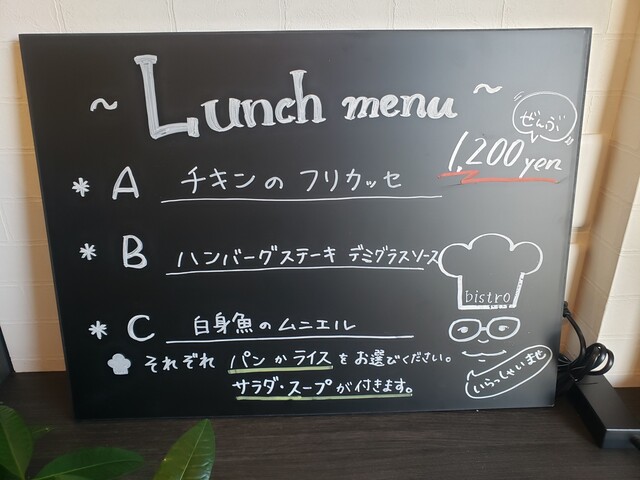 ~ Lunch menu ~
ぜんぶ
1,200 yen
* A チキンの フリカッセ
* B ハンバーグステーキ デミグラスソース
* C 白身魚のムニエル
それぞれ パンかライスをお選びください。
サラダ・スープが付きます。
bistro
いらっしゃいませ